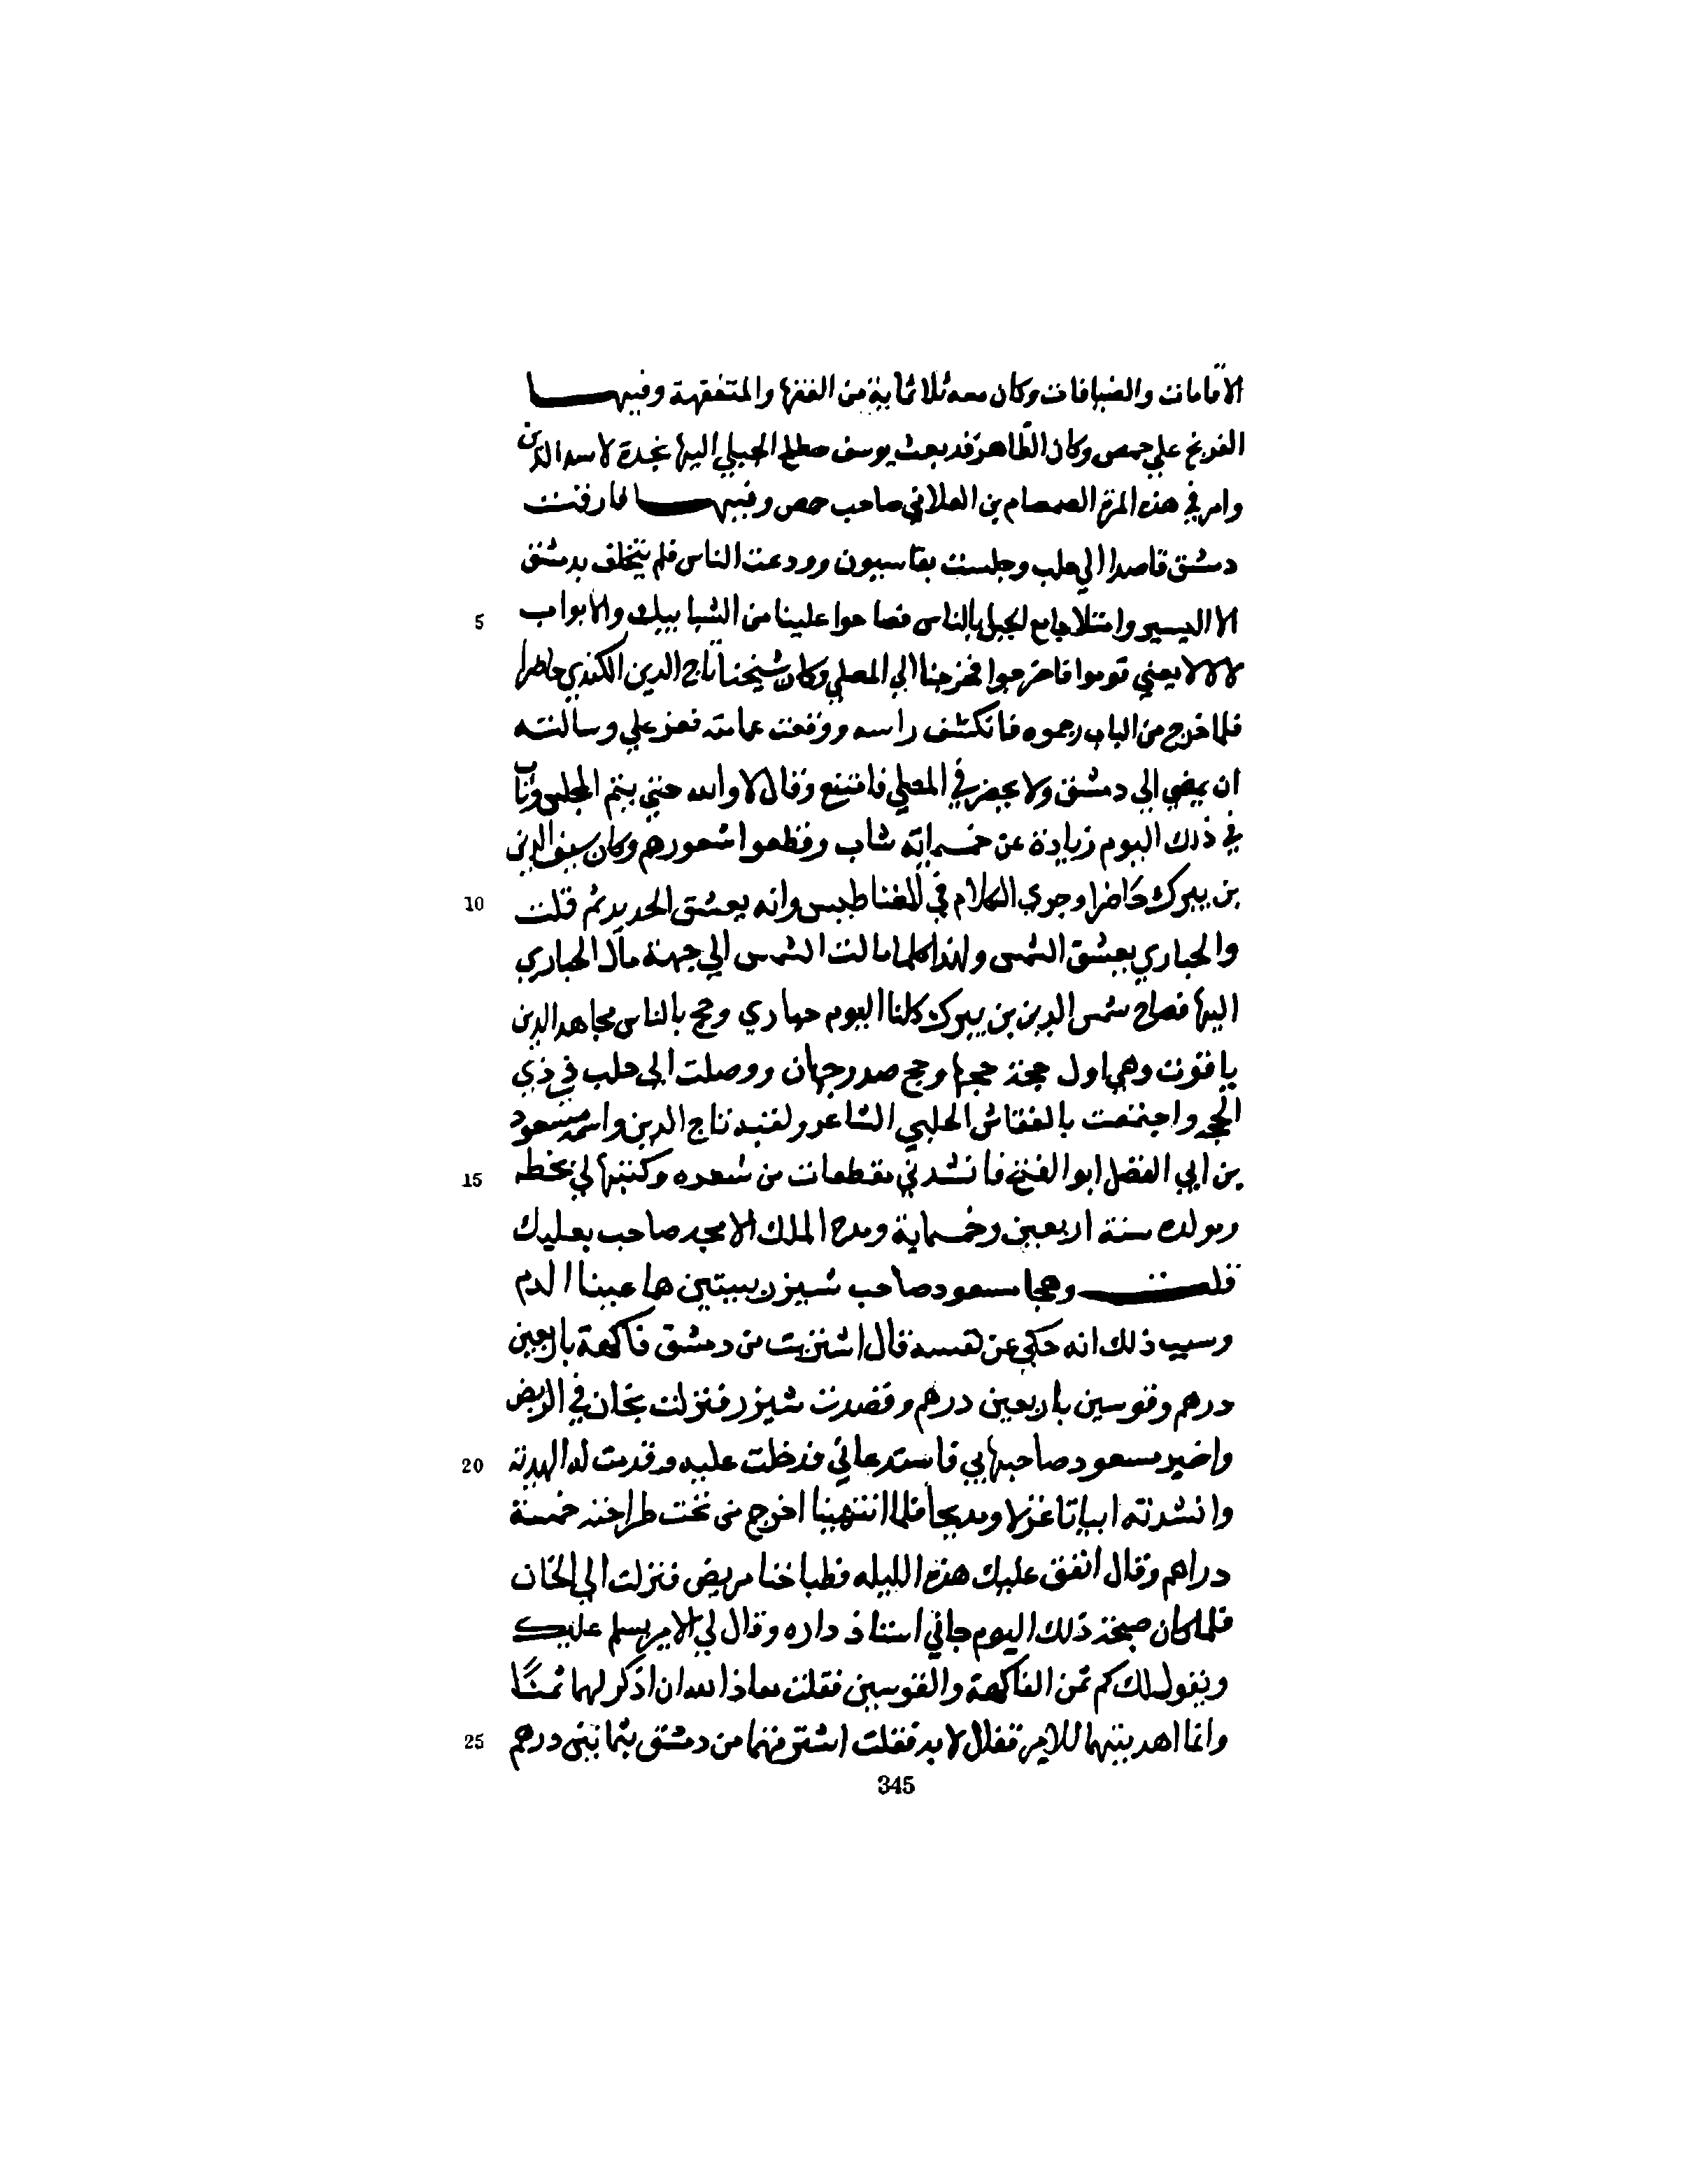 الاقامات والضيافات وكان معه ثلاثماية من الفقها والمتفقهة وفيها
الفرنج علي حمص وكان الظاهر قد بعث يوسف بن خطلخ الحلبي اليها نجدة لاسد الدين
واسر في هذه المرة الصمصام بن العلاني صاحب حمص وفيها فارقت
دمشق قاصدا الي حلب وجلست بقاسيون وودعت الناس فلم يتخلف بدمشق
5 الا اليسير وامتلا جامع الجبل بالناس فصاحوا علينا من الشبابيك والابواب
لا لا لا يعني قوموا فاخرجوا فخرجنا الي المصلي وكان شيخنا تاج الدين الكندي حاضرا
فلما خرج من الباب زحموه فانكشف راسه ووقعت عمامته فعز علي وسالته
ان يمضي الي دمشق ولا يحضر في المصلي فامتنع وقال لا والله حتي يتم المجلس وتاب
في ذلك اليوم زيادة عن خمسماية شاب وقطعوا شعورهم وكان سيف الدين
10 بن بيرك حاضرا وجري الكلام في المغناطيس وانه يعشق الحديد ثم قلت
والحباري يعشق الشمس ولهذا كلما مالت الشمس الي جهة مال الحباري
اليها فصاح شمس الدين بن بيرك كلنا اليوم حباري وحج بالناس مجاهد الدين
ياقوت وهي اول حجة حجها وحج صدر جهان ووصلت الى حلب في ذي
الحجه واجتمعت بالنقاش الحلبي الشاعر ولقبه تاج الدين واسمه مسعود
15 بن ابي الفضل ابو الفتح فانشدني مقطعات من شعره وكتبها لي بخطه
ومولده سنة اربعين وخمسماية ومدح الملك الامجد صاحب بعلبك
قلت وهجا مسعود صاحب شيزر ببيتين هما عينا الدم
وسبب ذلك انه حكي عن نفسه قال اشتريت من دمشق فاكهة باربعين
درهم وقوسين باربعين درهم وقصدت شيزر فنزلت بخان في الربض
20 واخبر مسعود صاحبها بي فاستدعاني فدخلت عليه وقدمت له الهدية
وانشدته ابياتا غزلا ومديحا فلما انتهينا اخرج من تحت طراحته خمسة
دراهم وقال انفق عليك هذه الليله فطباخنا مريض فنزلت الي الخان
فلما كان صبحة ذلك اليوم جاني استاذ داره وقال لي الامير يسلم عليك
ويقول لك كم ثمن الفاكهة والقوسين فقلت معاذ الله ان اذكر لهما ثمنًا
25 وانما اهديتهما للامير فقال لا بد فقلت اشتريتهما من دمشق بثمانين درهم
345